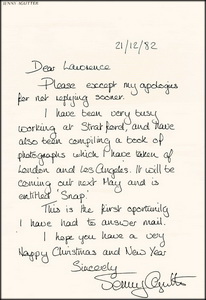 JENNY AGUTTER
21/12/82
Dear Lawrence
Please except my apologies
for not replying sooner.
I have been very busy
working at Stratford, and have
also been compiling a book of
photographs which I have taken of
London and Los Angeles. It will be
coming out next May and is
entitled 'Snap'.
This is the first opportunity
I have had to answer mail.
I hope you have a very
Happy Christmas and New Year
Sincerely
Jenny Agutter